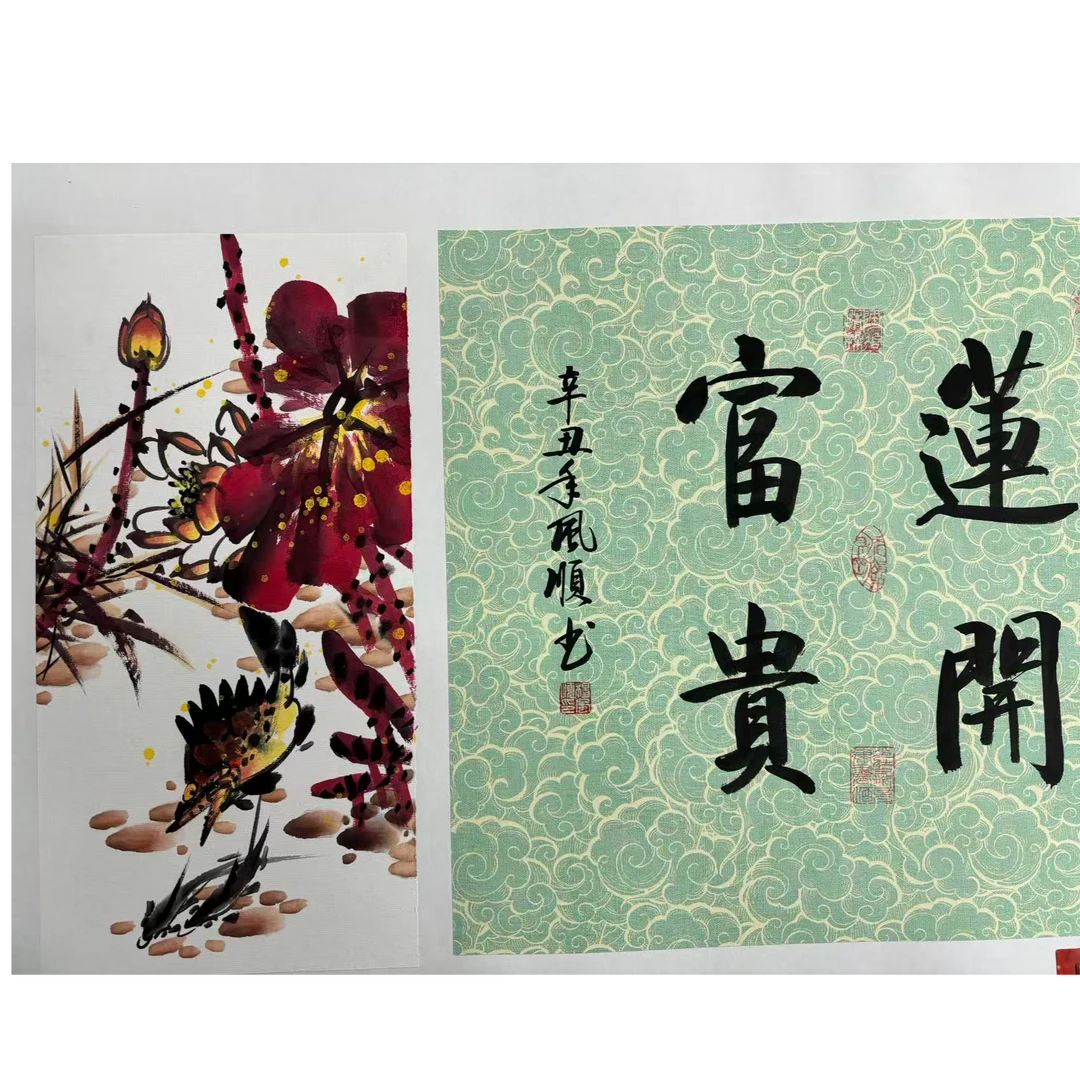 蓮開
富貴
辛丑年風順书